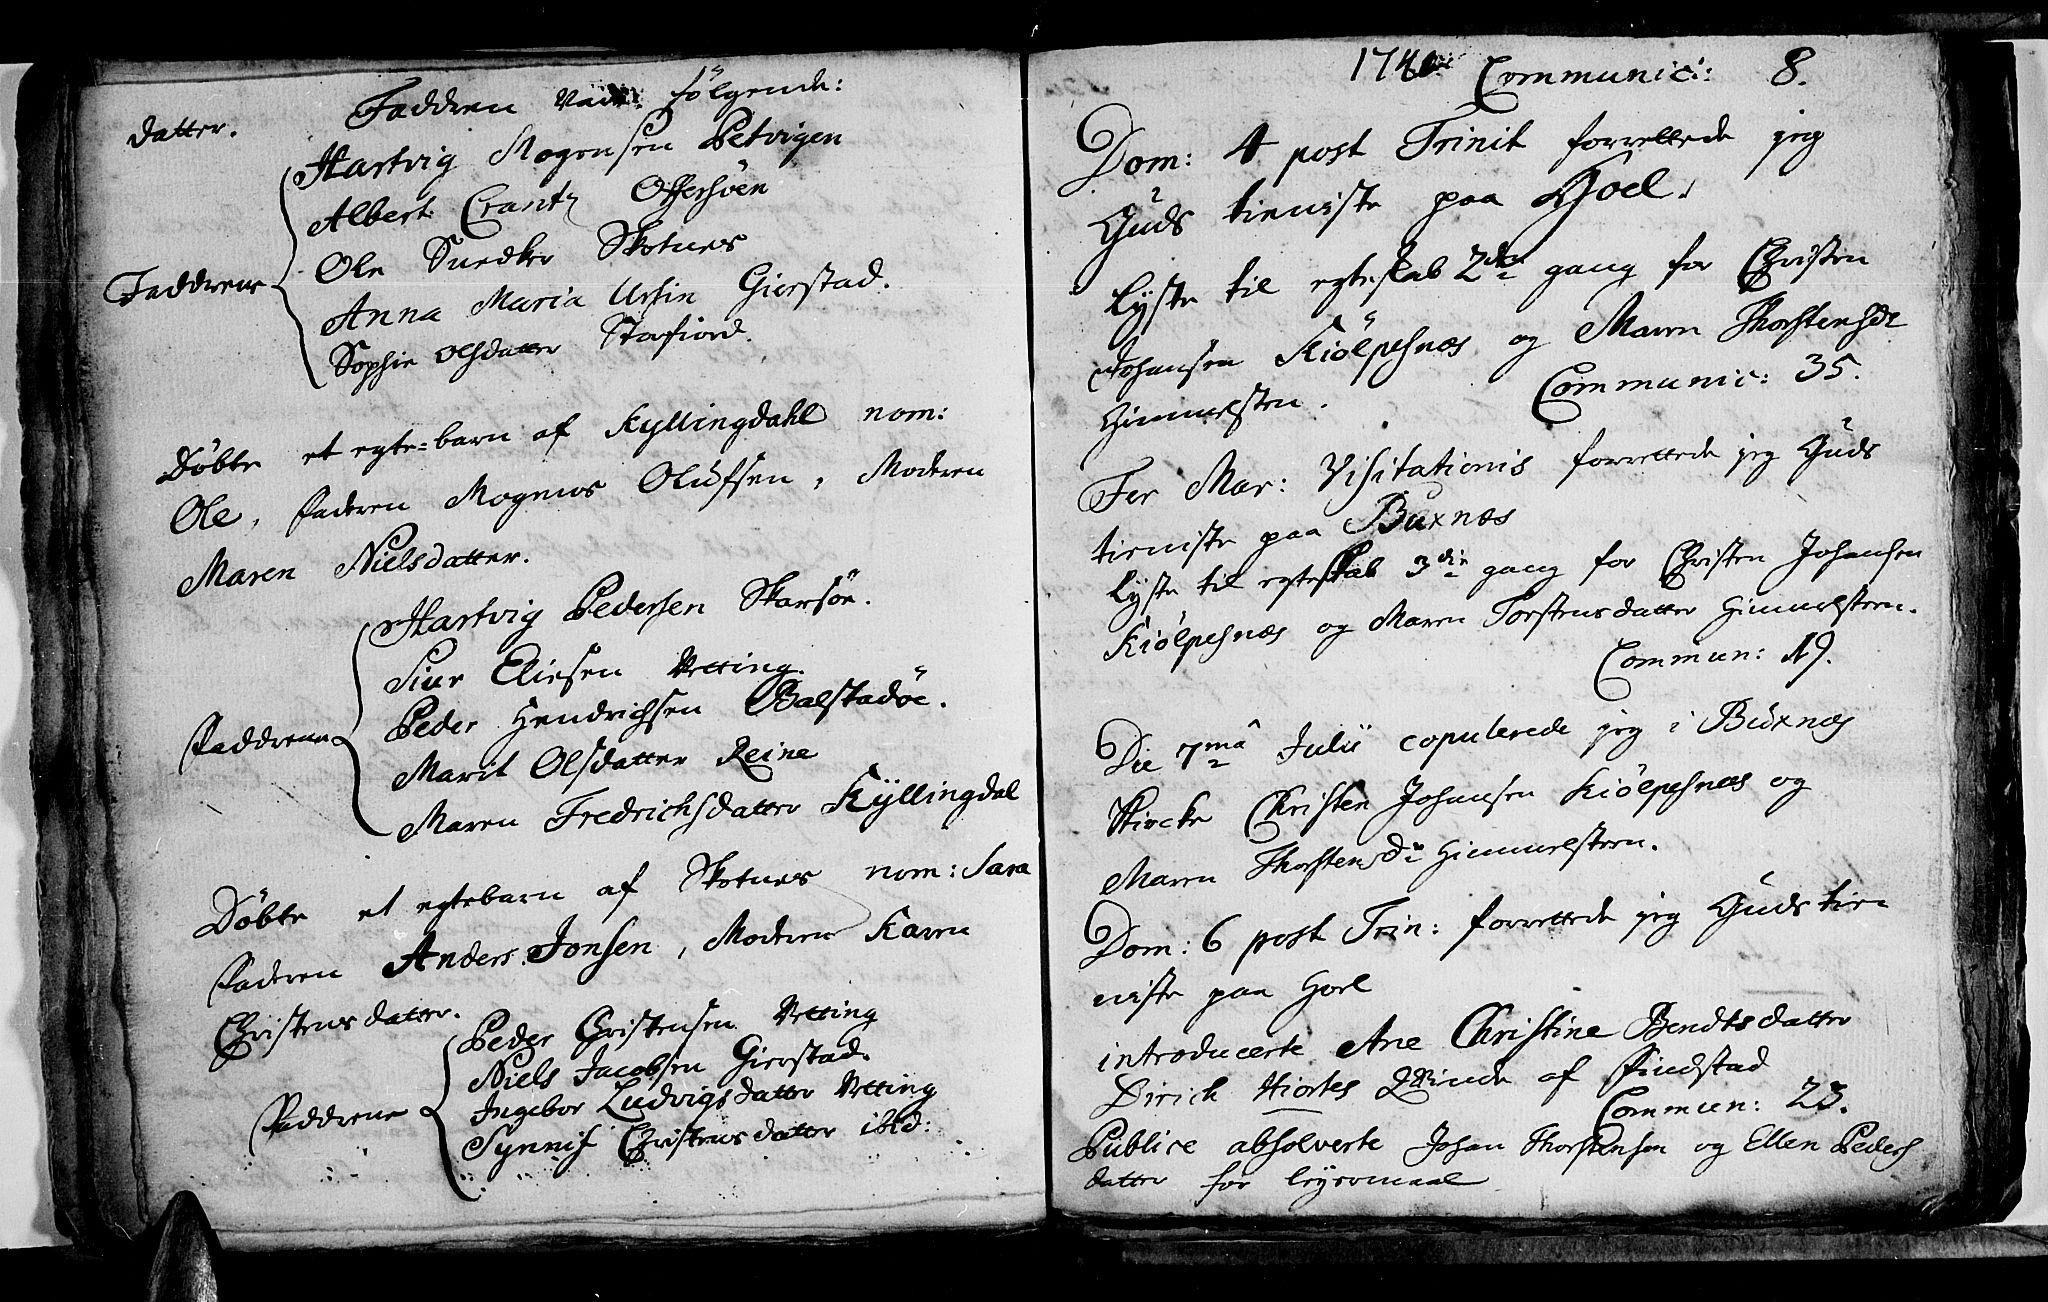 datter. Faddren vare følgende:
Hartvig Mogensen Petvigen
Albert Crantz Offersöen
Ole Snedker Skotnes
Faddrene Anna Maria Ursin Gierstad.
Sophie Olsdatter Storfiord.
Döbte et egte=barn af Kyllingdahl nom:
Ole, Faderen Mogens Olufsen, Moderen
Maren Nielsdatter.
Hartvig Pedersen Skarsöe.
Siur Eliesen Vetting
Faddrene Peder Hendrichsen Balstadöe.
Marit Olsdatter Reine
Maren Fredrichsdatter Kyllingdal
Döbte et egtebarn af Skotnes nom: Sara
Faderen Anders Jonsen, Moderen Karen
Christensdatter.
Peder Christensen Vetting
Niels Jacobsen Gierstad.
Faddrene Ingebor Ludvigsdatter Vetting
Synnif Christensdatter ibid:
1740 Communici: 8.
Dom: 4 post Trinit forrettede jeg
Guds tieniste paa Hoel.
lyste til egteskab 2den gang for Christen
Johansen Kiölpesnæs og Maren Thorstensdr
Himmelsteen. Communic: 35.
Fer Mar: Visitationis forrettede jeg Guds
tieniste paa Buxnæs
lyste til egteskab 3die gang for Christen Johansen
Kiölpesnæs og Maren Torstensdatter Himmelsteen.
Commun: 19.
Die 7mâ Julii copulerede jeg i Buxnæs
Kircke Christen Johansen Kiölpesnæs og
Maren Thorstensdr Himmelsteen.
Dom: 6 post Trin: forrettede jeg Guds tie-
niste paa Hoel
introducerte Ane Christine Bendtsdatter
Dirich Hiortes Qvinde af Findstad
Commun: 23.
Publice absolverte Johan Thorstensen og Ellen Peders
datter for leyermaal